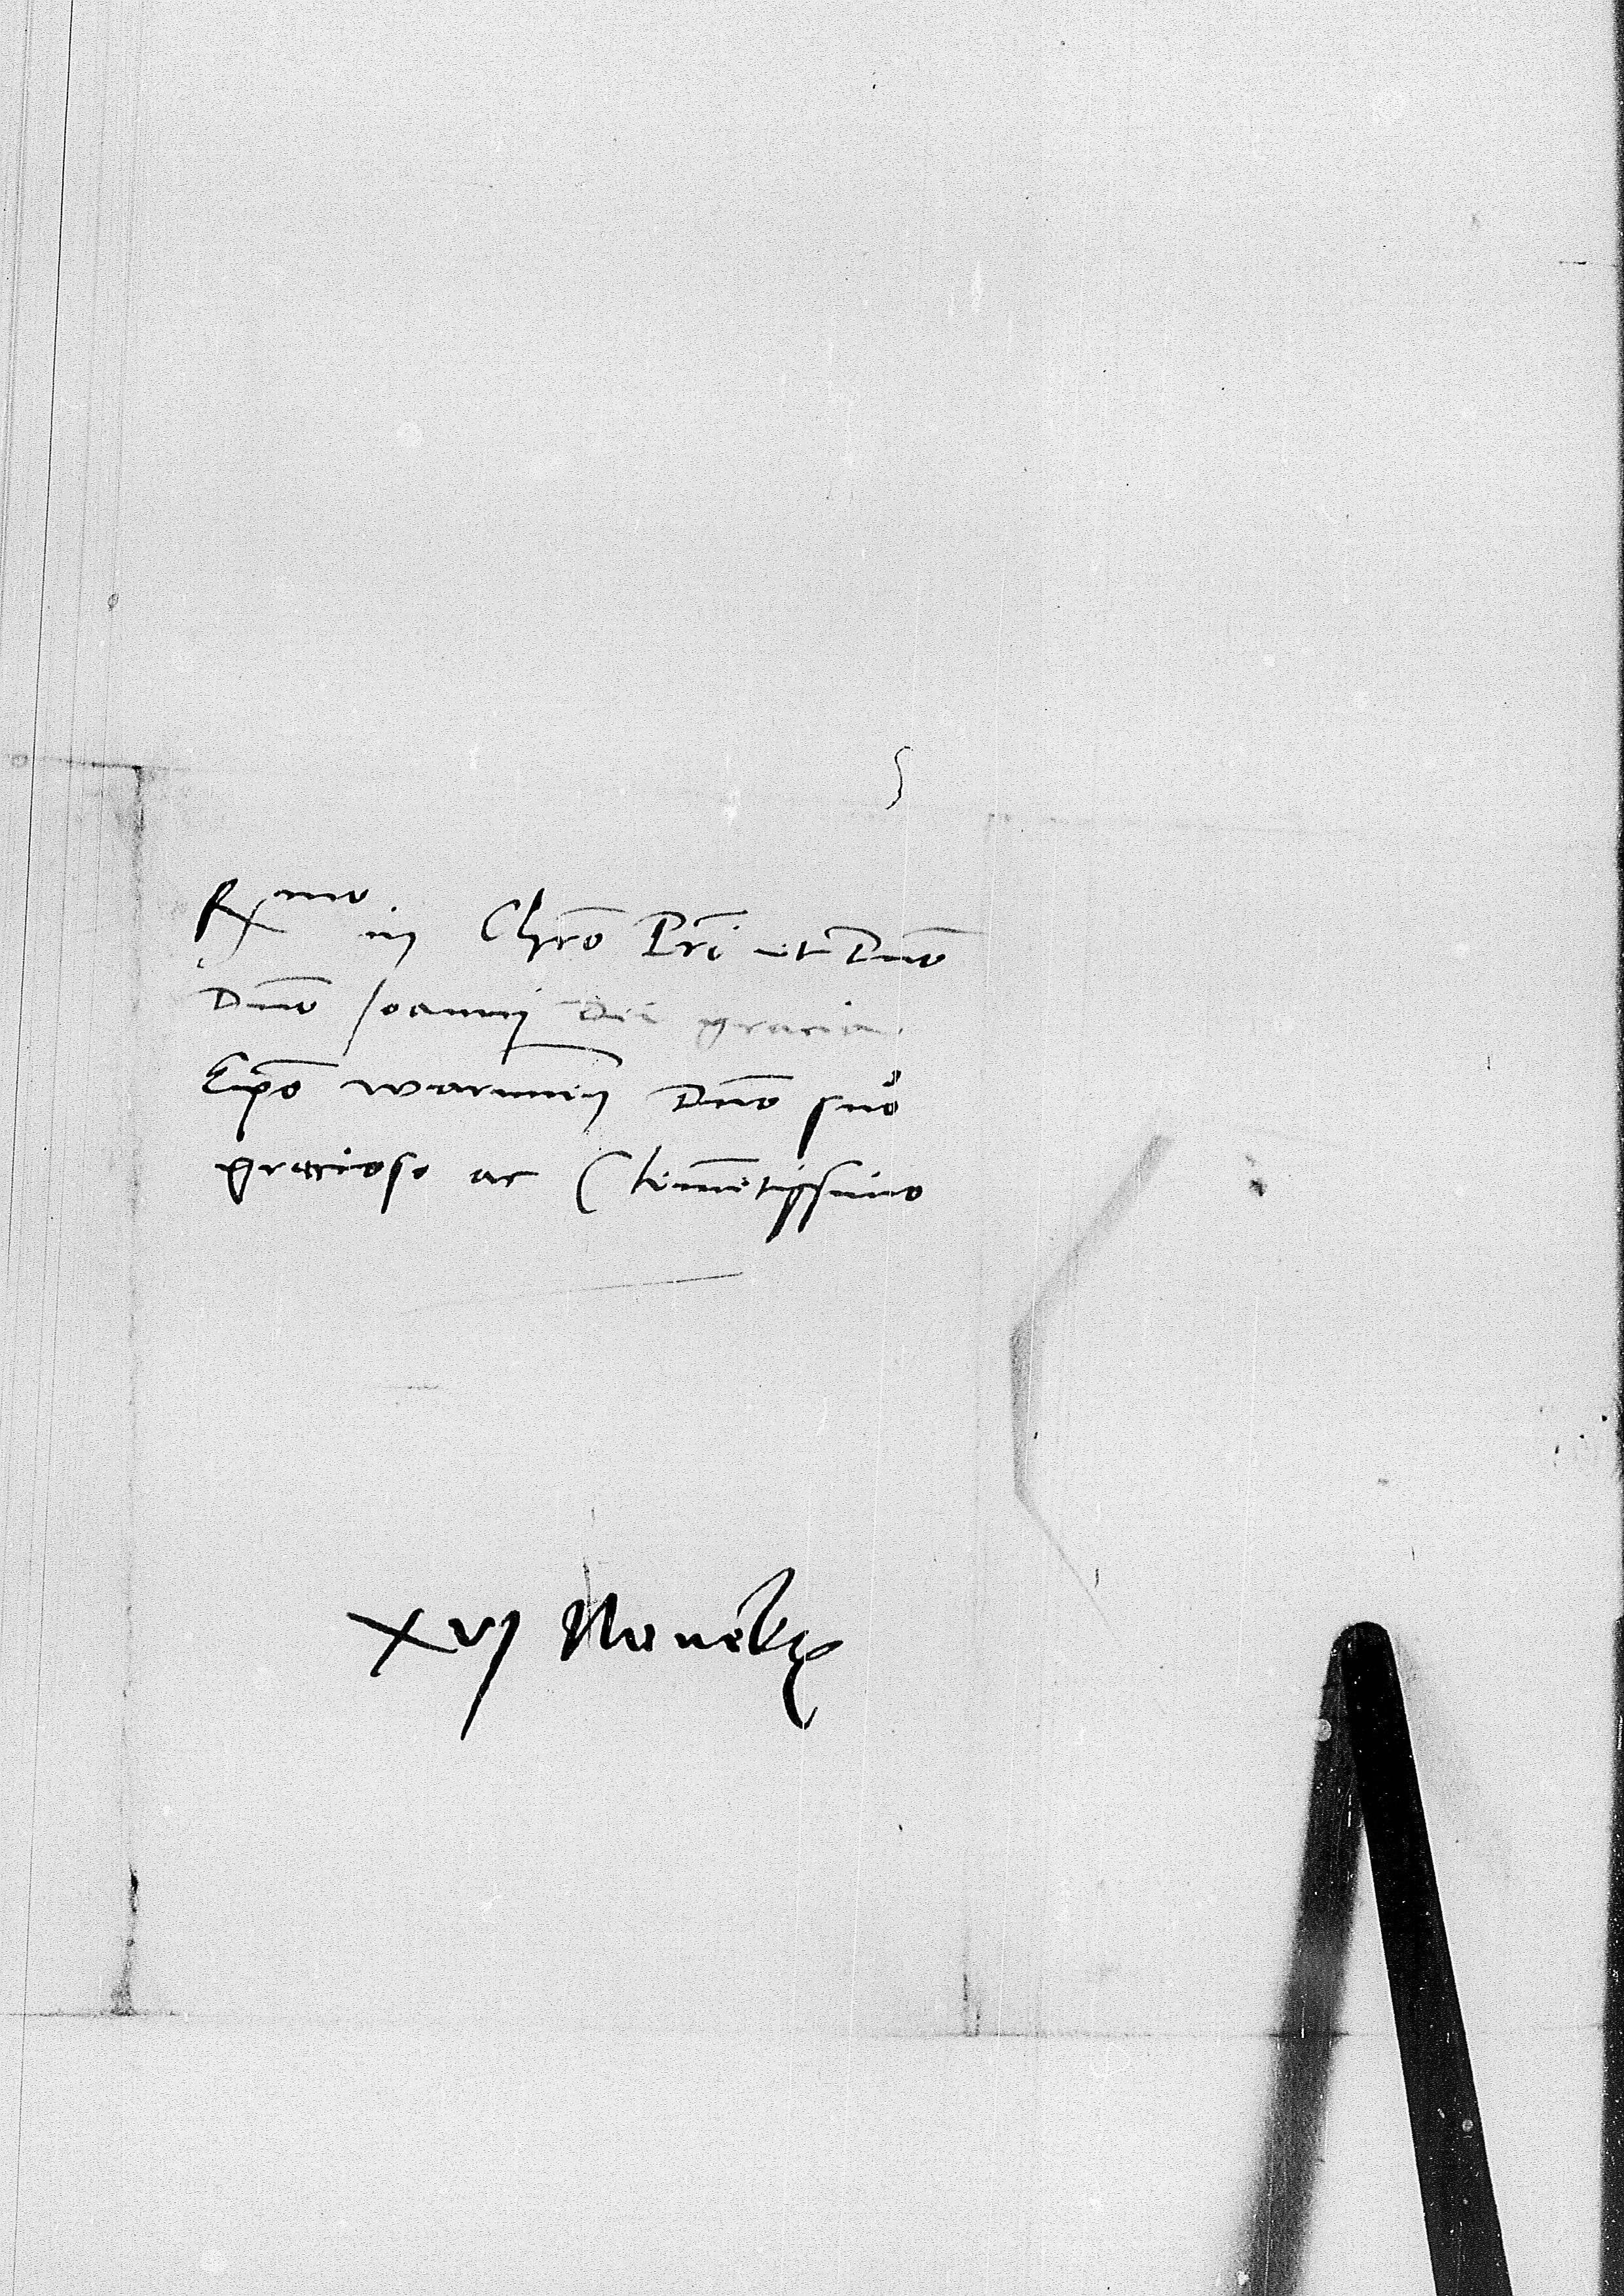 Rx^mo in Chr̄o Pr̄i et Dn̄o
Dn̄o Joanni Dei gracia
Ep̄o warmieñ Dn̄o suo
gracioso ac Clemētissimo
XVI Novēbr